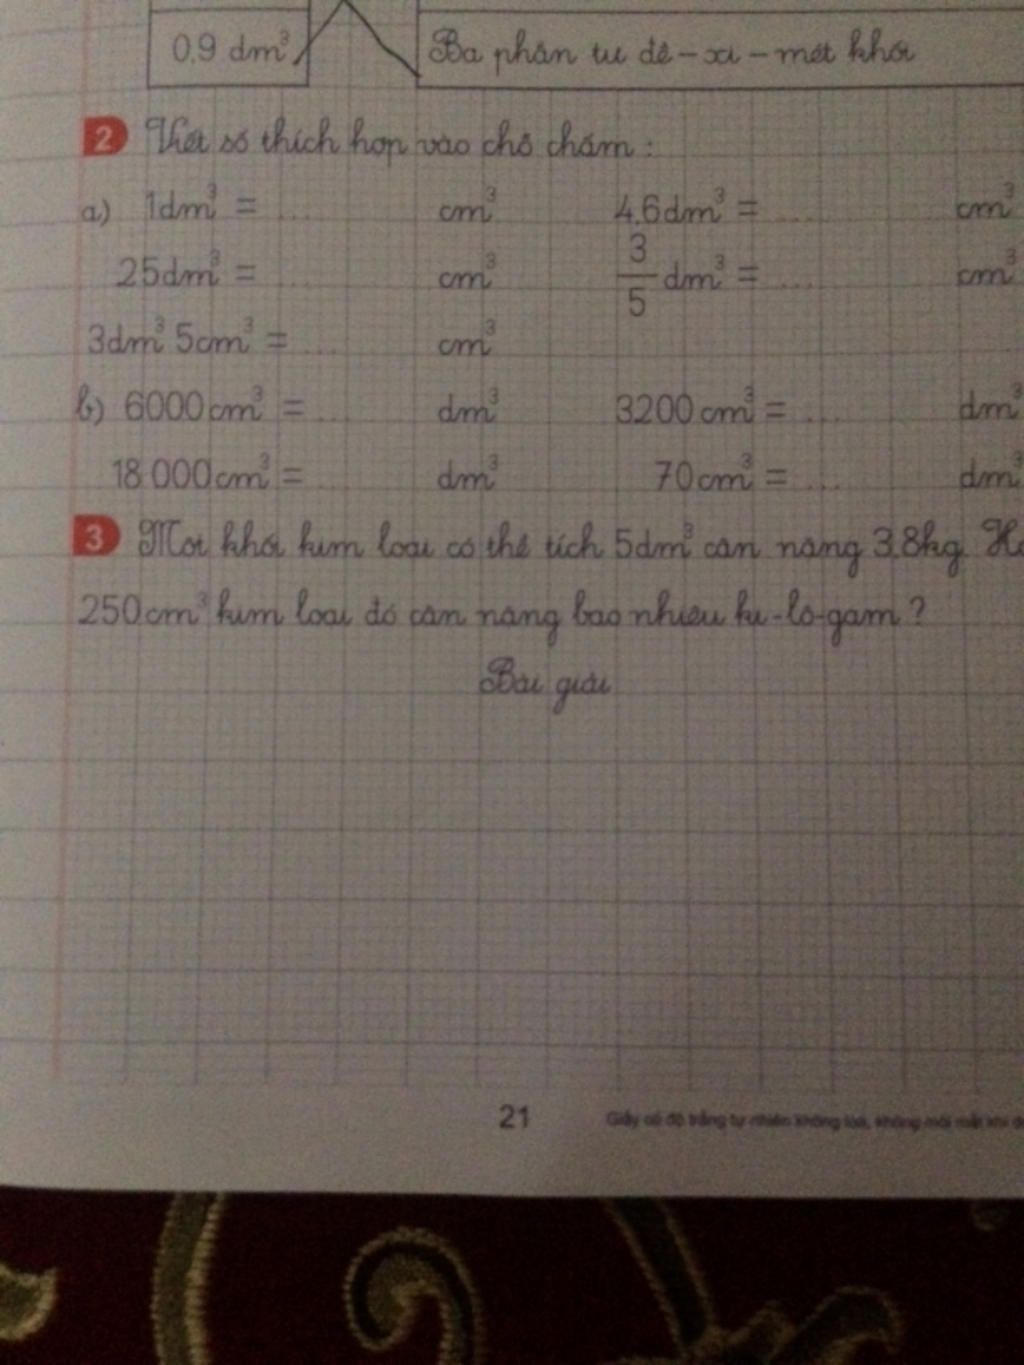 0,9 dm³ Ba phần tư đề-xi-mét khối
2 Viết số thích hợp vào chỗ chấm:
a) 1dm³ = ... cm³ 4,6dm³ = ... cm³
25dm³ = ... cm³ 3/5 dm³ = ... cm³
3dm³ 5cm³ = ... cm³
b) 6000cm³ = ... dm³ 3200cm³ = ... dm³
18 000cm³ = ... dm³ 70cm³ = ... dm³
3 Một khối kim loại có thể tích 5dm³ cân nặng 3,8kg.
250cm³ kim loại đó cân nặng bao nhiêu ki-lô-gam?
Bài giải
21 Giấy có độ trắng tự nhiên không loá, không mỏi mắt khi